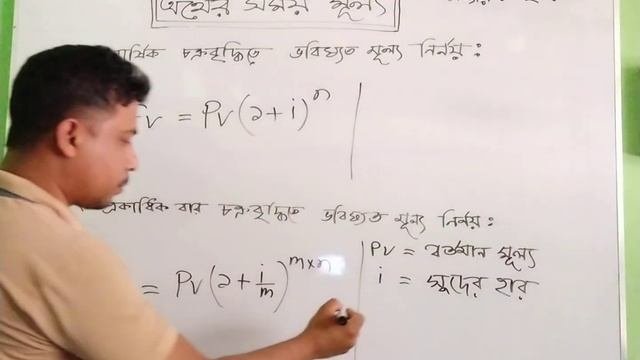 অর্থের সময় মূল্য
বার্ষিক চক্রবৃদ্ধিতে ভবিষ্যত মূল্য নির্নয়:
= PV(১+i)^n
একাধিক বার চক্রবৃদ্ধিতে ভবিষ্যত মূল্য নির্নয়:
= PV(১+i/m)^m×n
PV = বর্তমান মূল্য
i = সুদের হার